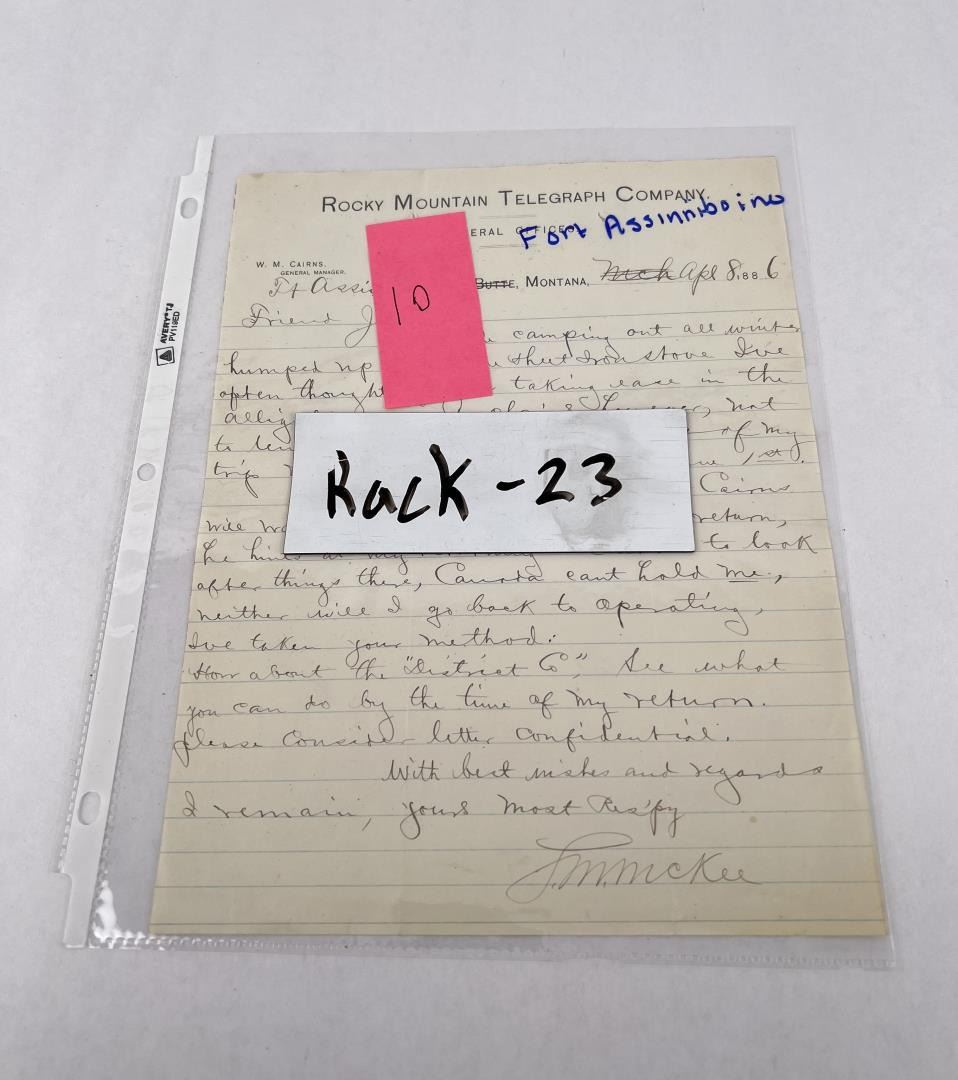 ROCKY MOUNTAIN TELEGRAPH COMPANY.
Fort Assinniboine
W. M. CAIRNS,
GENERAL MANAGER.
BUTTE, MONTANA, Mch Apl 8, 1886
Ft
10
Friend
camping out all winter
humped up sheet Iron stove I've
often thought taking ease in the
not
to of my
trip 1st.
Rack - 23
Cairns
will return,
he hints to look
after things there, Canada cant hold me,
neither will I go back to operating,
I've taken your method.
How about the "District Co", See what
you can do by the time of my return.
please consider letter confidential.
With best wishes and regards
I remain, yours most Resp'y
J.M. McKee
AVERY TJ
PV119ED